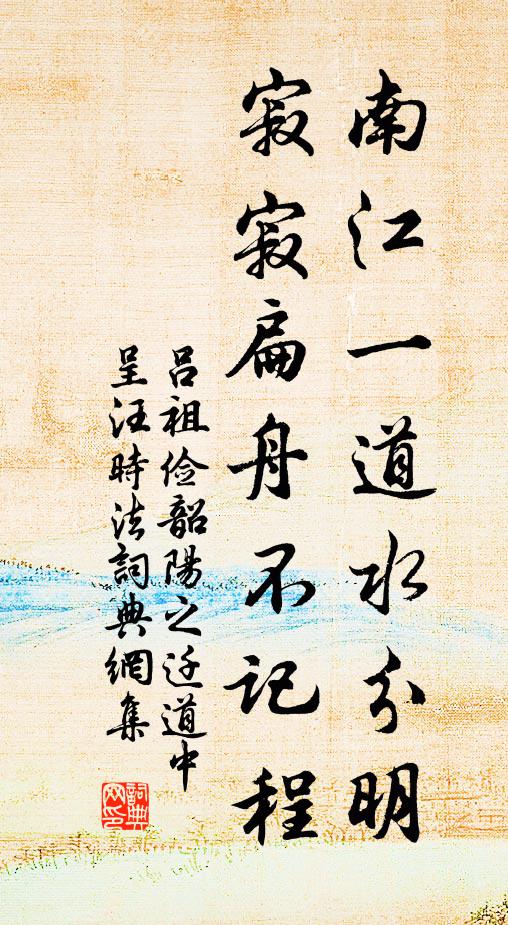 南江一道水分明
寂寂扁舟不记程
吕祖俭韶陽之迁道中
呈汪時法詞典網集
詞典网印